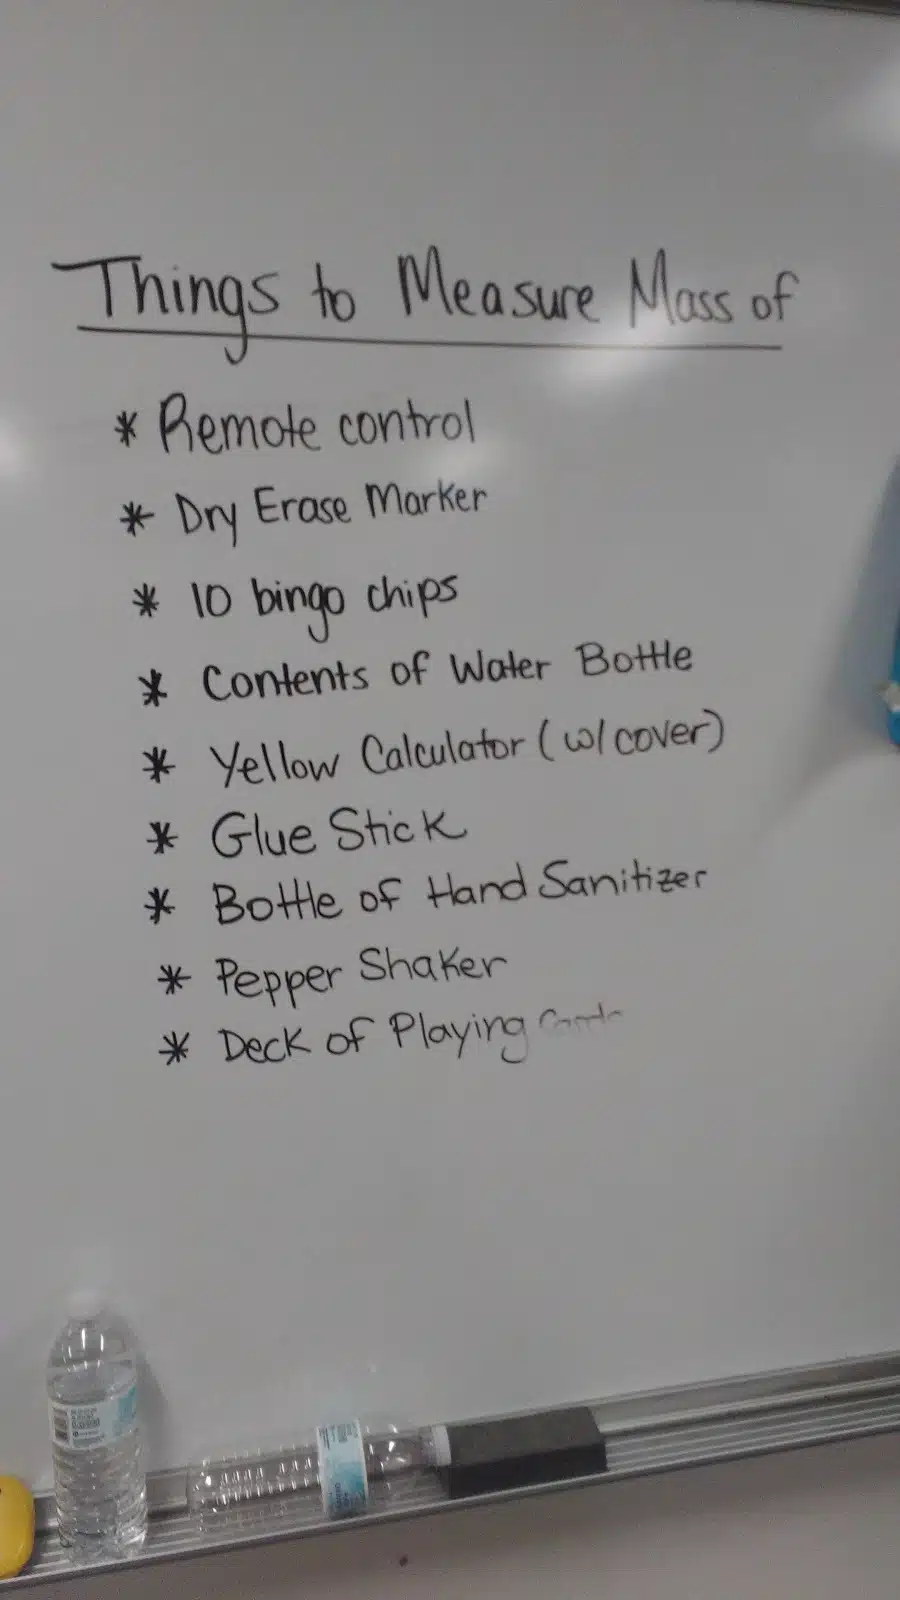 Things to Measure Mass of
* Remote control
* Dry Erase Marker
* 10 bingo chips
* Contents of Water Bottle
* Yellow Calculator (w/cover)
* Glue Stick
* Bottle of Hand Sanitizer
* Pepper Shaker
* Deck of Playing Cards